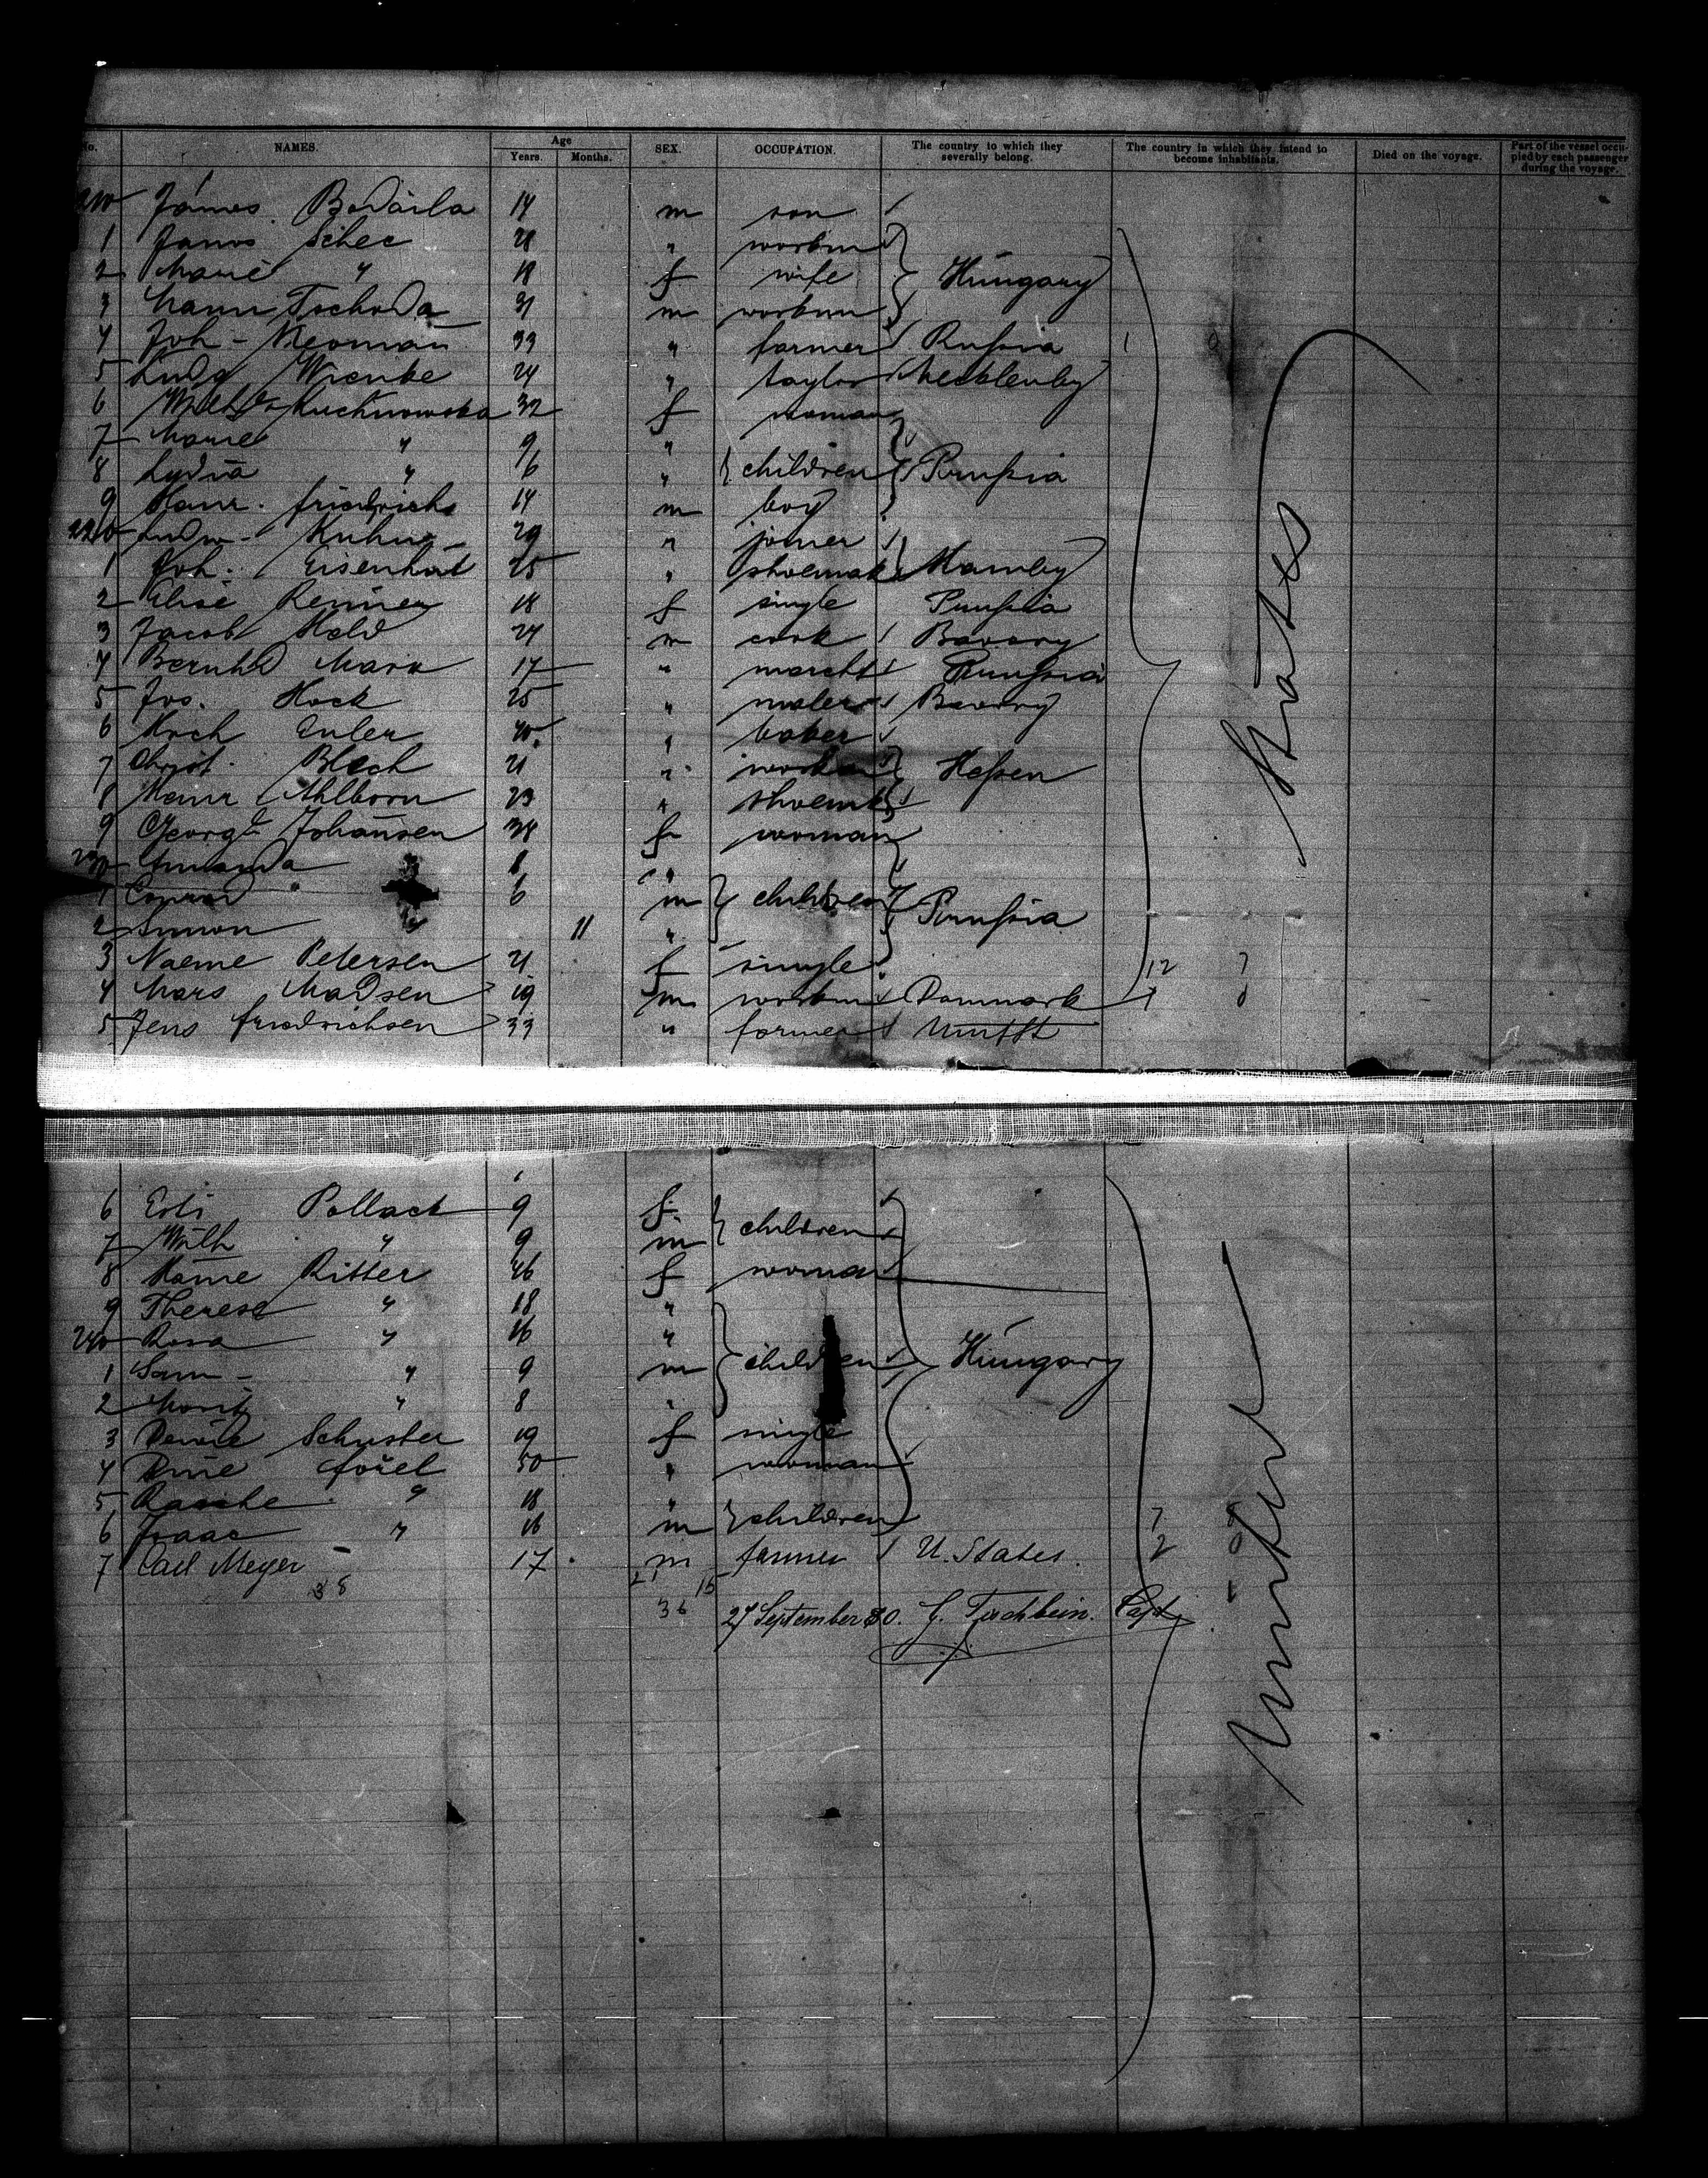 No. NAMES. Age Years. Months. SEX. OCCUPATION. The country to which they severally belong. The country in which they intend to become inhabitants. Died on the voyage. Part of the vessel occupied by each passenger during the voyage.
210 János 14 m son
1 Janos 28 " workm
2 Marie " 18 f wife Hungary
3 31 m workm
4 Joh - 33 " farmer Russia
5 Ludg Wienke 24 " taylor Mecklenbg
6 32 f woman
7 Marie " 9 "
8 Lydia " 6 " children Prussia
9 Heinr. Friedrichs 14 m boy
220 Ludw- Kuhne 29 " joiner
1 Joh. Eisenhut 25 " shoemak
2 Elise 18 f single Prussia
3 Jacob Held 24 m cook Bavary
4 Bernhd Marx 17 " marcht Prussia
5 Jos. Hock 25 " maler Bavary
6 Koch Euler 40 " baker
7 Christ. Blech 21 " workm Hessen
8 Heinr Ahlborn 23 " shoemk
9 George Johansen 34 f woman
230 Amanda 8 "
1 Conrad 6 m children
2 " 11 " Prussia
3 Naeme Petersen 21 f single 12 7
4 Mars Madsen 19 m workm Danmark 1 0
5 Jens Friedrichsen 33 " farmer
States
6 Pollack 9 f
7 Wilh " 9 m children
8 Ritter 46 f woman
9 Therese " 18 "
240 Rosa " 16 "
1 Sam - " 9 m children Hungary
2 Moritz " 8 "
3 Schuster 19 f single
4 50 " woman
5 " 18 "
6 Isaac " 16 m children 7 8
7 Carl Meyer 17 m farmer U. States. 2 0
38 21 15
36 27 September 80. Capt
United